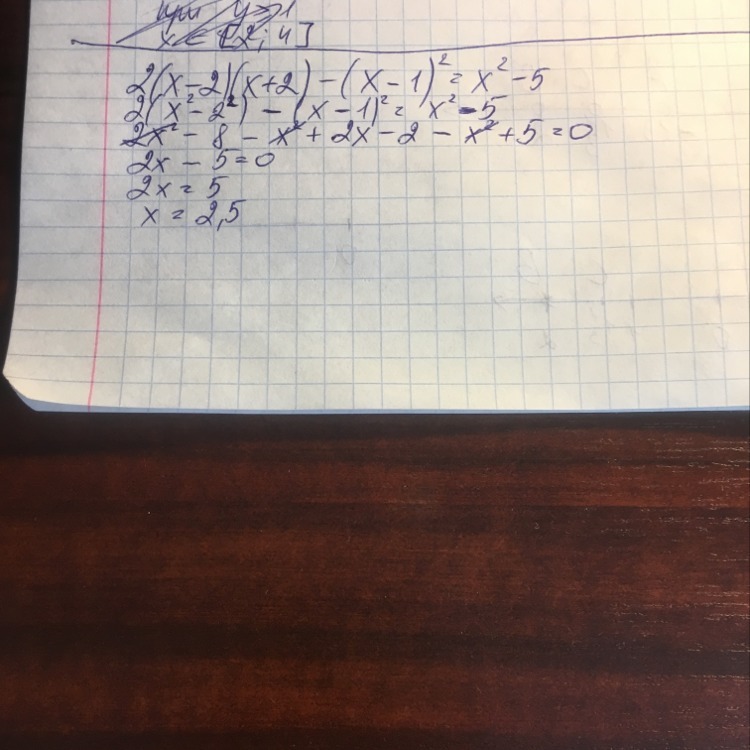 при y > 1
x ∈ [2; 4]
2(x-2)(x+2) - (x-1)² = x² - 5
2(x² - 2²) - (x-1)² = x² - 5
2x² - 8 - x² + 2x - 2 - x² + 5 = 0
2x - 5 = 0
2x = 5
x = 2,5